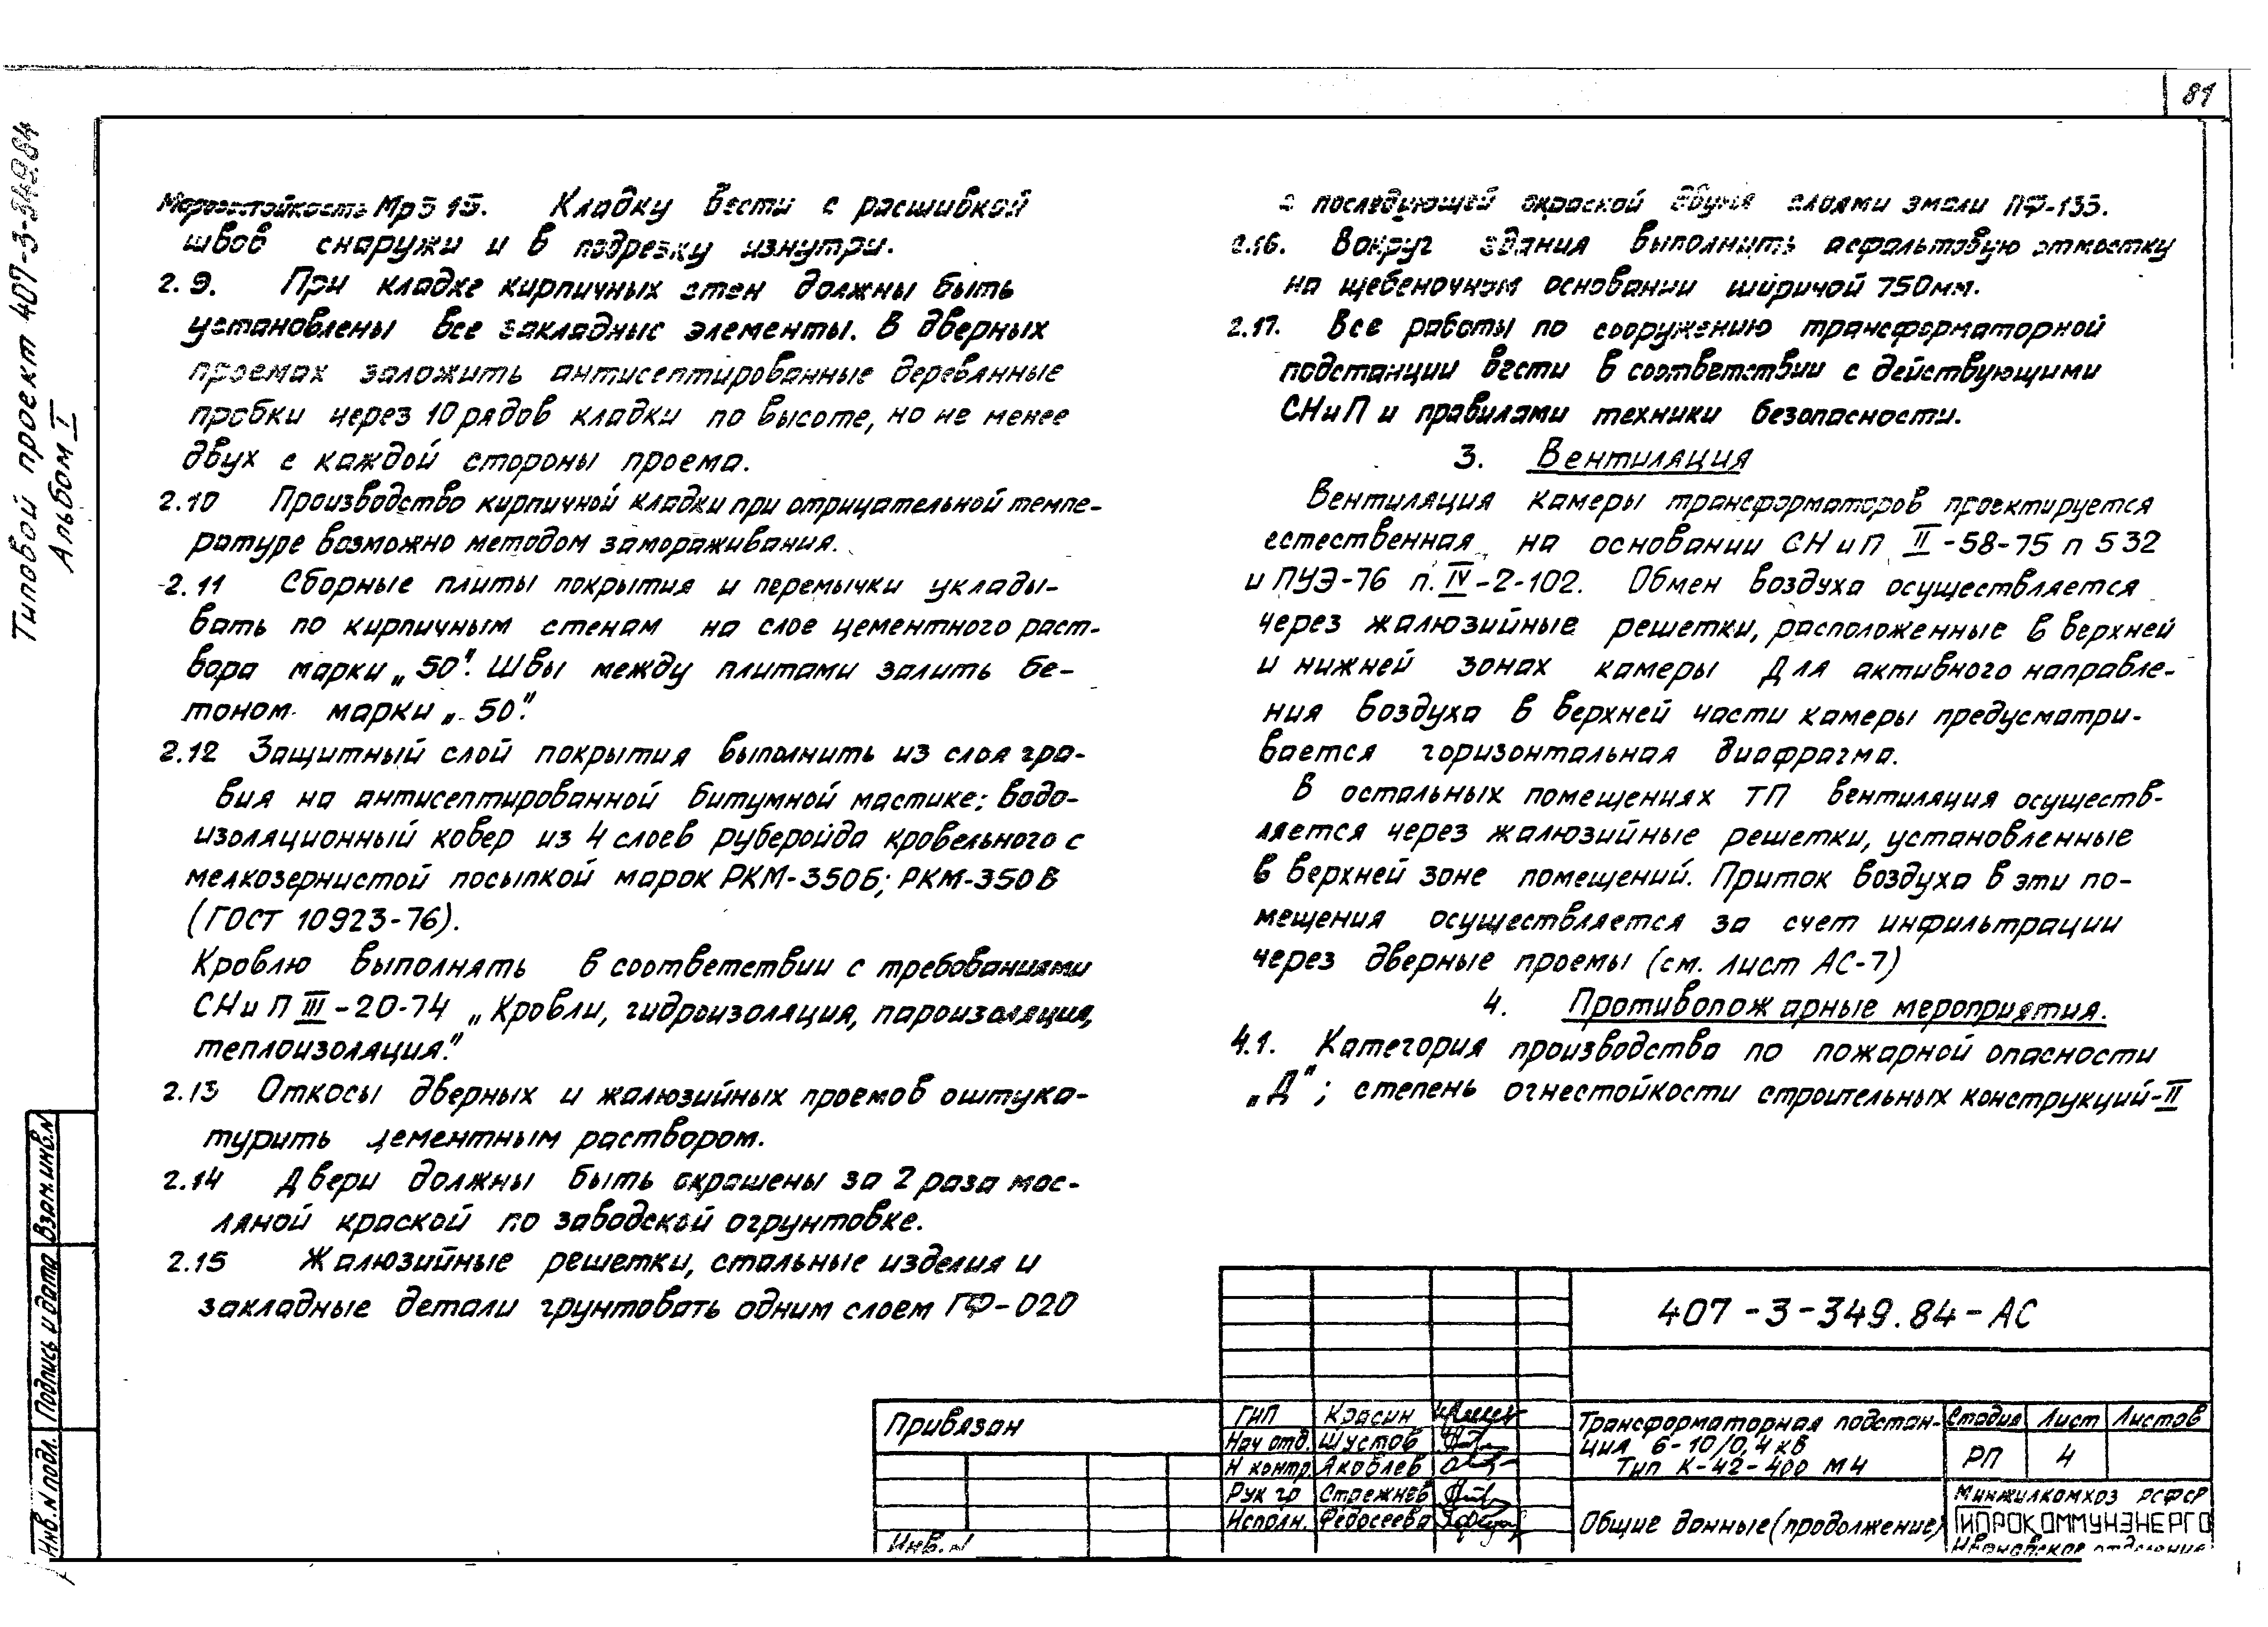 81
Типовой проект 407-3-349.84
Альбом I
Морозостойкость Мрз 15. Кладку вести с расшивкой
швов снаружи и в подрезку изнутри.
2.9. При кладке кирпичных стен должны быть
установлены все закладные элементы. В дверных
проемах заложить антисептированные деревянные
пробки через 10 рядов кладки по высоте, но не менее
двух с каждой стороны проема.
2.10 Производство кирпичной кладки при отрицательной темпе-
ратуре возможно методом замораживания.
2.11 Сборные плиты покрытия и перемычки уклады-
вать по кирпичным стенам на слое цементного раст-
вора марки „50". Швы между плитами залить бе-
тоном марки „50".
2.12 Защитный слой покрытия выполнить из слоя гра-
вия на антисептированной битумной мастике; водо-
изоляционный ковер из 4 слоев рубероида кровельного с
мелкозернистой посыпкой марок РКМ-350Б; РКМ-350В
(ГОСТ 10923-76).
Кровлю выполнять в соответствии с требованиями
СНиП III-20-74 „Кровли, гидроизоляция, пароизоляция,
теплоизоляция."
2.13 Откосы дверных и жалюзийных проемов оштука-
турить цементным раствором.
2.14 Двери должны быть окрашены за 2 раза мас-
ляной краской по заводской огрунтовке.
2.15 Жалюзийные решетки, стальные изделия и
закладные детали грунтовать одним слоем ГФ-020
с последующей окраской двумя слоями эмали ПФ-133.
2.16. Вокруг здания выполнить асфальтовую отмостку
на щебеночном основании шириной 750мм.
2.17. Все работы по сооружению трансформаторной
подстанции вести в соответствии с действующими
СНиП и правилами техники безопасности.
3. Вентиляция
Вентиляция камеры трансформаторов проектируется
естественная на основании СНиП II-58-75 п 532
и ПУЭ-76 п. IV-2-102. Обмен воздуха осуществляется
через жалюзийные решетки, расположенные в верхней
и нижней зонах камеры Для активного направле-
ния воздуха в верхней части камеры предусматри-
вается горизонтальная диафрагма.
В остальных помещениях ТП вентиляция осуществ-
ляется через жалюзийные решетки, установленные
в верхней зоне помещений. Приток воздуха в эти по-
мещения осуществляется за счет инфильтрации
через дверные проемы (см. лист АС-7)
4. Противопожарные мероприятия.
4.1. Категория производства по пожарной опасности
„Д"; степень огнестойкости строительных конструкций-II
407-3-349.84-АС
Привязан
Инв.N
ГИП Красин
Нач отд. Шустов
Н контр. Яковлев
Рук гр Стрежнев
Исполн. Федосеева
Трансформаторная подстан-
ция 6-10/0,4 кв
Тип К-42-400 М4
Стадия Лист Листов
РП 4
Общие данные (продолжение)
Минжилкомхоз РСФСР
ГИПРОКОММУНЭНЕРГО
Ивановское отделение
Взам.инв.N
Подпись и дата
Инв.N подл.